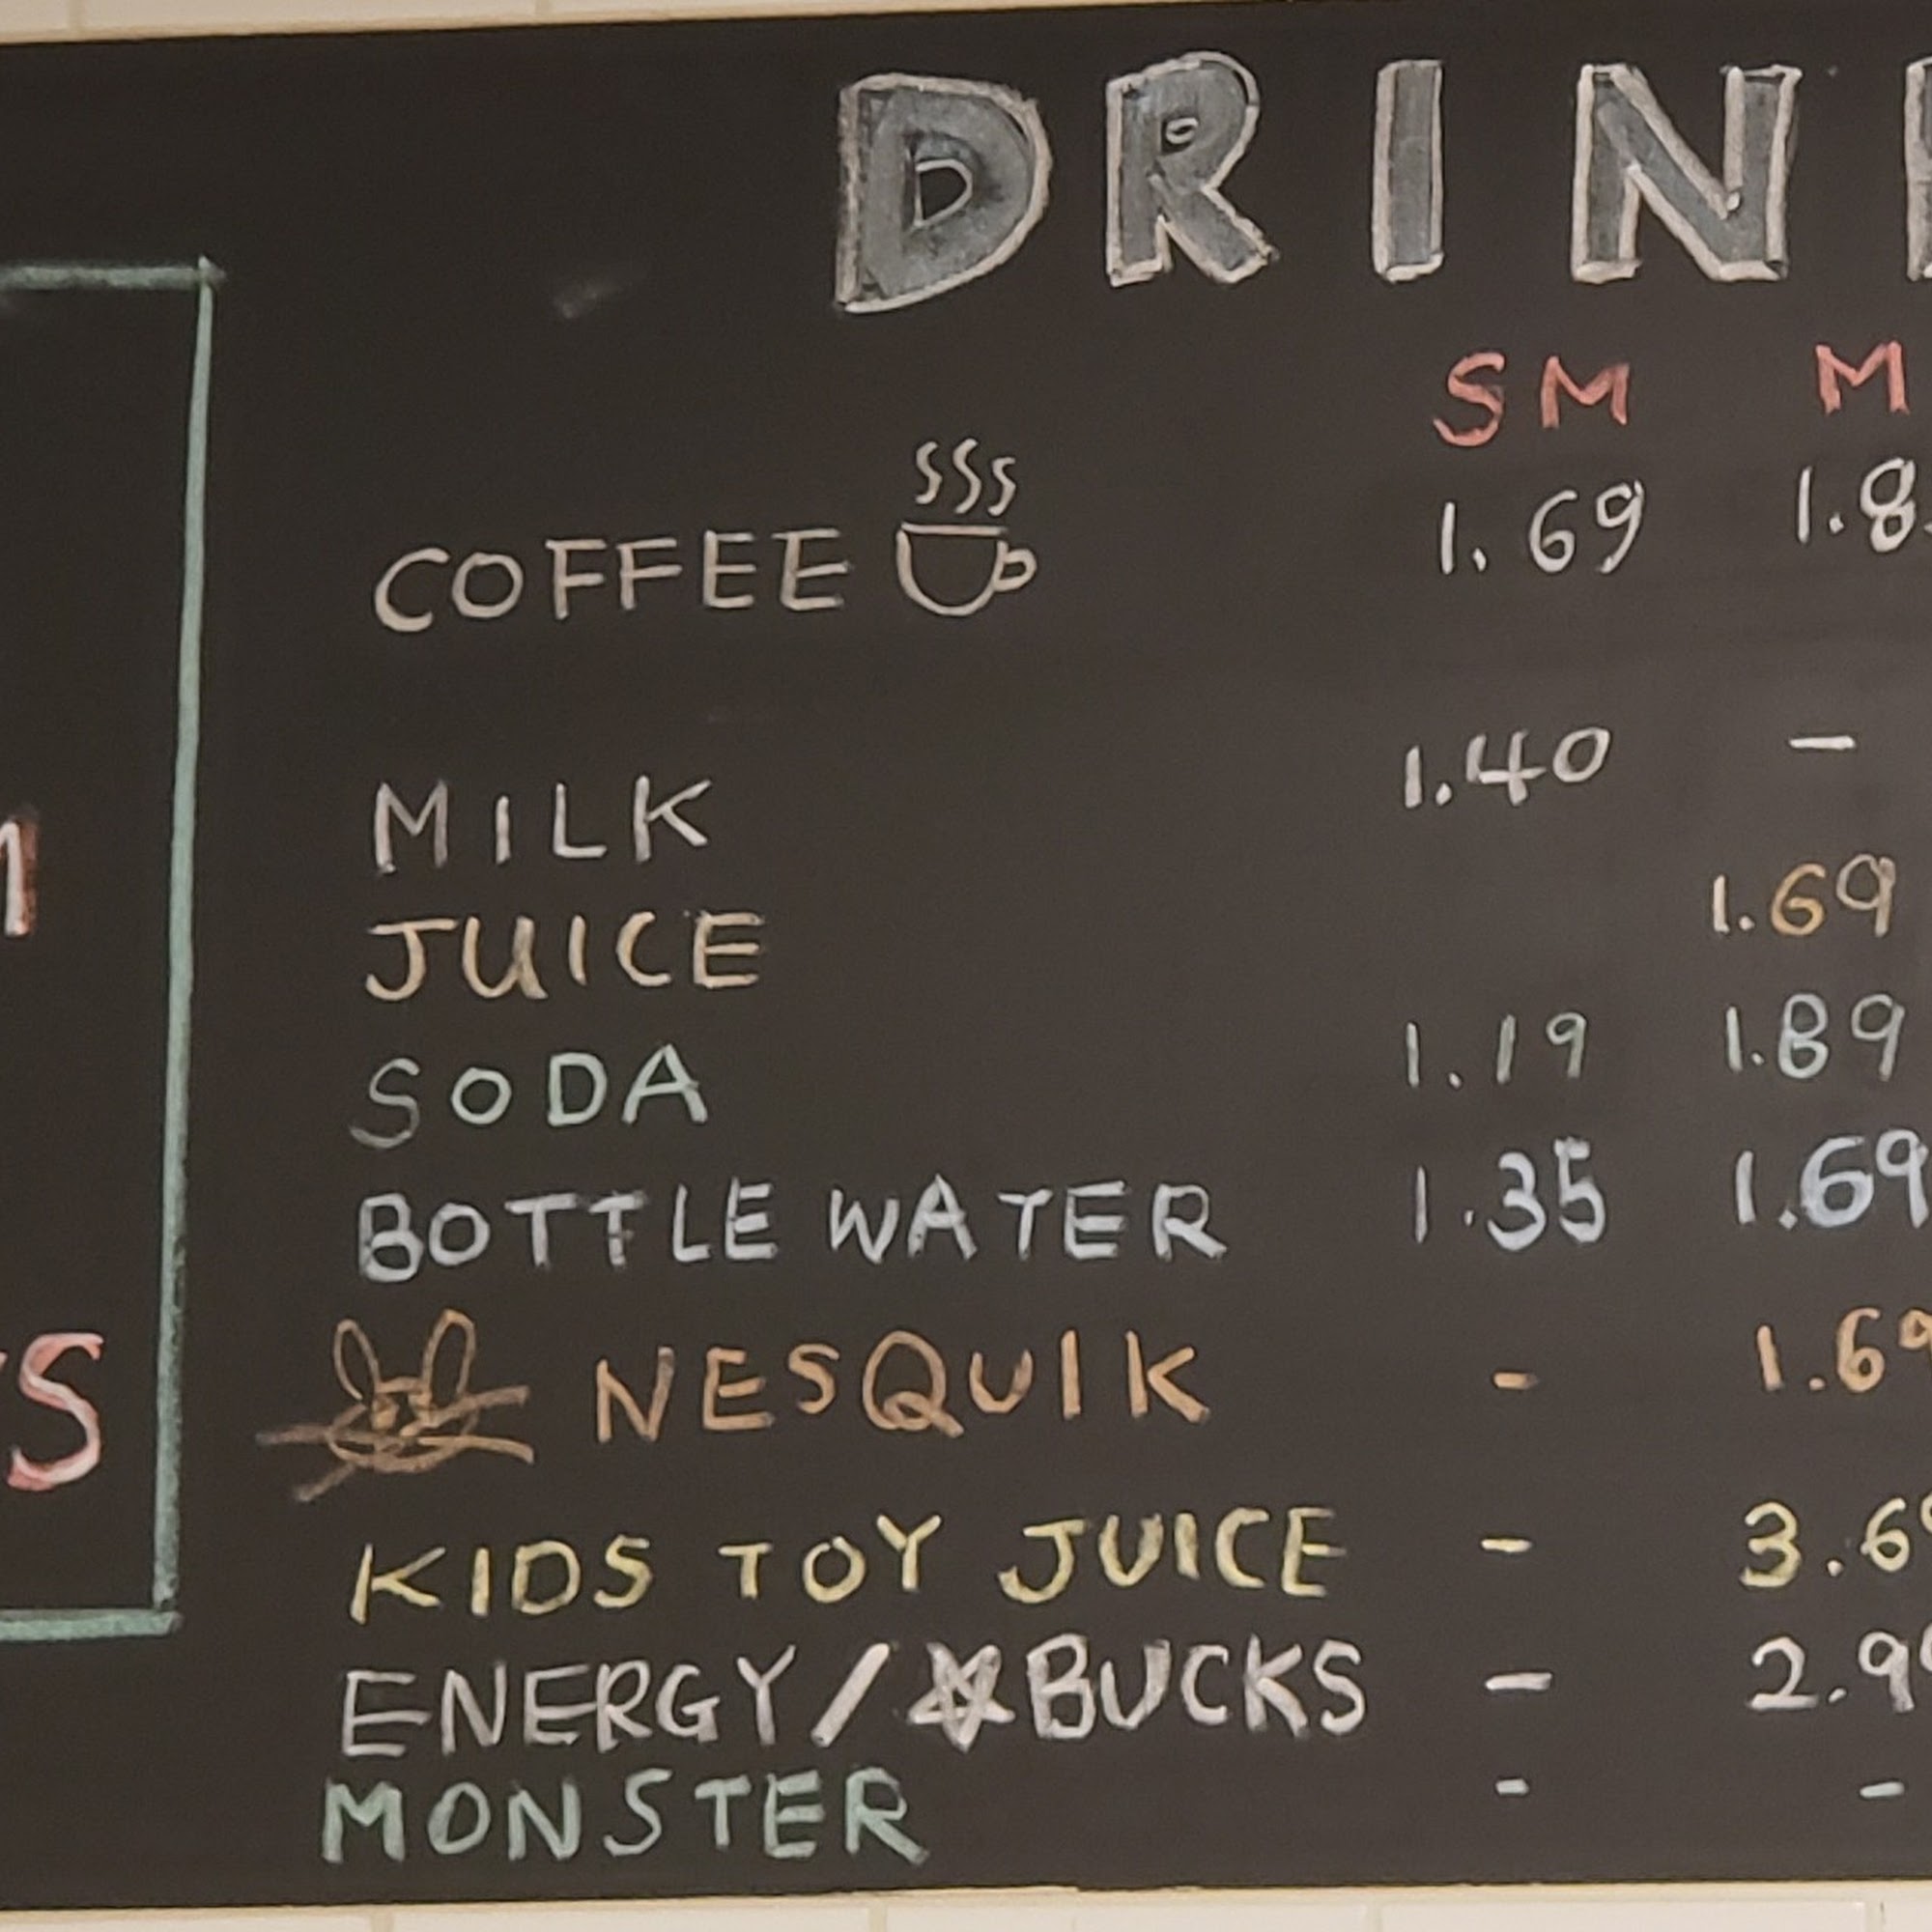 DRIN
SM M
COFFEE 1.69 1.8
MILK 1.40 -
JUICE 1.69
SODA 1.19 1.89
BOTTLE WATER 1.35 1.69
NESQUIK - 1.69
KIDS TOY JUICE - 3.6
ENERGY/☆BUCKS - 2.9
MONSTER - -
M
S